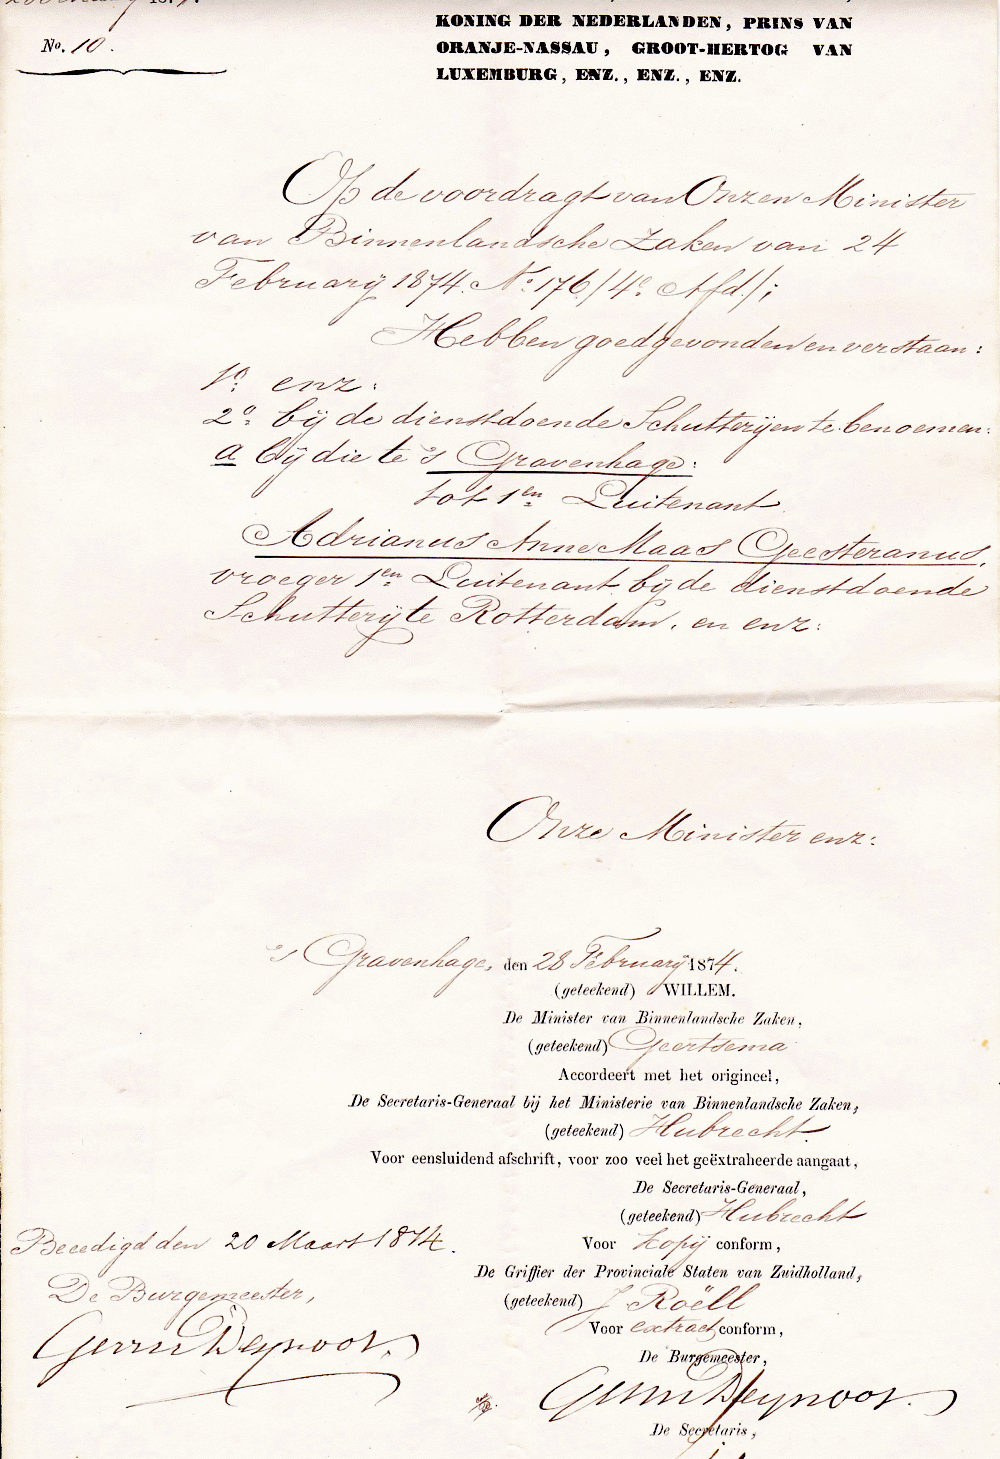 No. 10.
KONING DER NEDERLANDEN, PRINS VAN
ORANJE-NASSAU, GROOT-HERTOG VAN
LUXEMBURG, ENZ., ENZ., ENZ.
Op de voordragt van Onzen Minister
van Binnenlandsche Zaken van 24
February 1874. No. 176/4e. Afd./;
Hebben goedgevonden en verstaan:
1o. enz:
2o. bij de dienstdoende Schutterijen te benoemen:
a bij die te 's Gravenhage:
tot 1en Luitenant
Adrianus Anne Maas Geesteranus,
vroeger 1en Luitenant bij de dienstdoende
Schutterij te Rotterdam, en enz:
Onze Minister enz:
's Gravenhage, den 28 February 1874.
(geteekend) WILLEM.
De Minister van Binnenlandsche Zaken,
(geteekend) Geertsema
Accordeert met het origineel,
De Secretaris-Generaal bij het Ministerie van Binnenlandsche Zaken,
(geteekend) Hubrecht.
Voor eensluidend afschrift, voor zoo veel het geëxtraheerde aangaat,
De Secretaris-Generaal,
(geteekend) Hubrecht
Voor kopij conform,
De Griffier der Provinciale Staten van Zuidholland,
(geteekend) J Roëll
Voor extract conform,
De Burgemeester,
Gevers Deynoot.
De Secretaris,
Beeedigd den 20 Maart 1874.
De Burgemeester,
Gevers Deynoot.